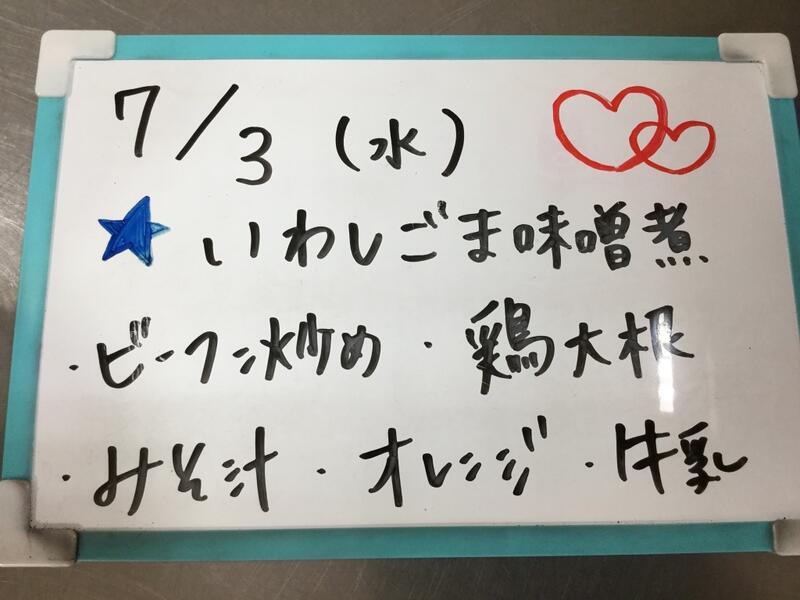 7/3 (水)
★ いわしごま味噌煮
・ビーフン炒め ・鶏大根
・みそ汁 ・オレンジ ・牛乳